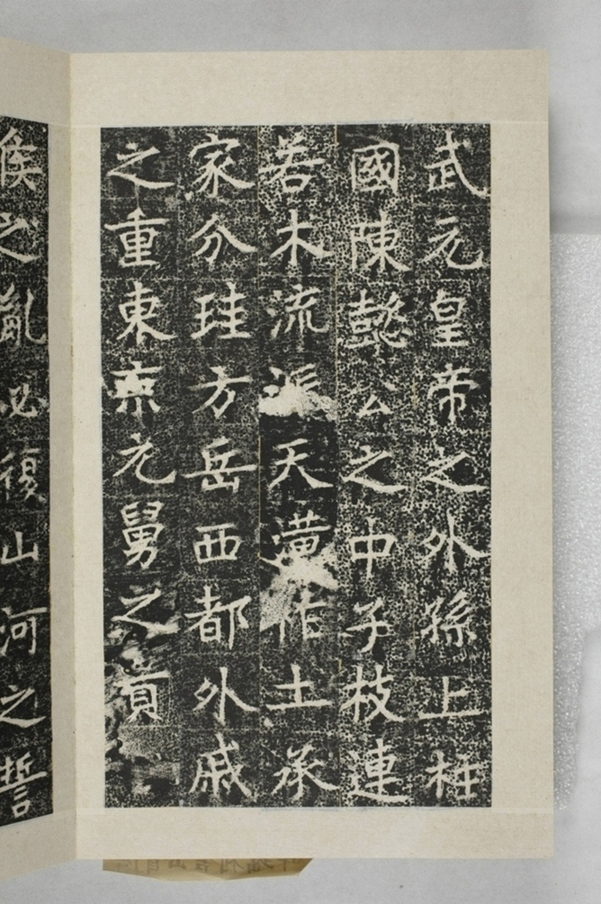 武元皇帝之外孫上柱
國陳懿公之中子枝連
若木流派天潢祚土承
家分珪方岳西都外戚
之重東京元舅之貴
侯之胤必復山河之誓